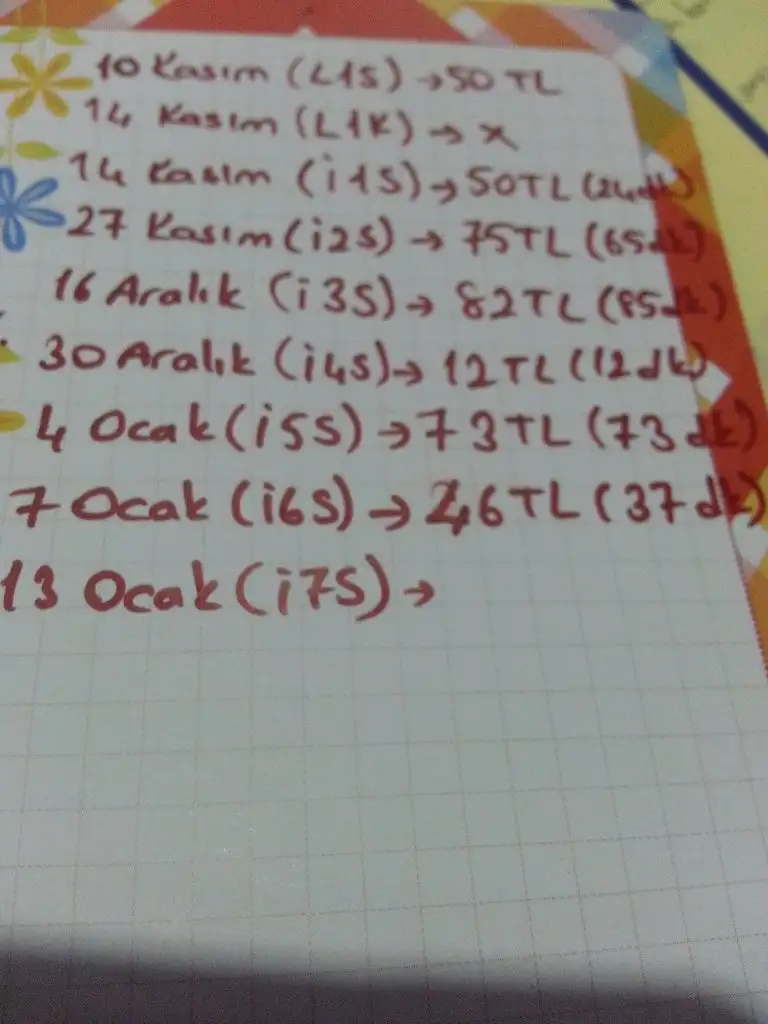 10 Kasım (L1S) → 50 TL
14 Kasım (L1K) → x
14 Kasım (i1S) → 50TL (24dk)
27 Kasım (i2S) → 75TL (65dk)
16 Aralık (i3S) → 82TL (85dk)
30 Aralık (i4S) → 12TL (12dk)
4 Ocak (i5S) → 73TL (73dk)
7 Ocak (i6S) → 46TL (37dk)
13 Ocak (i7S) →